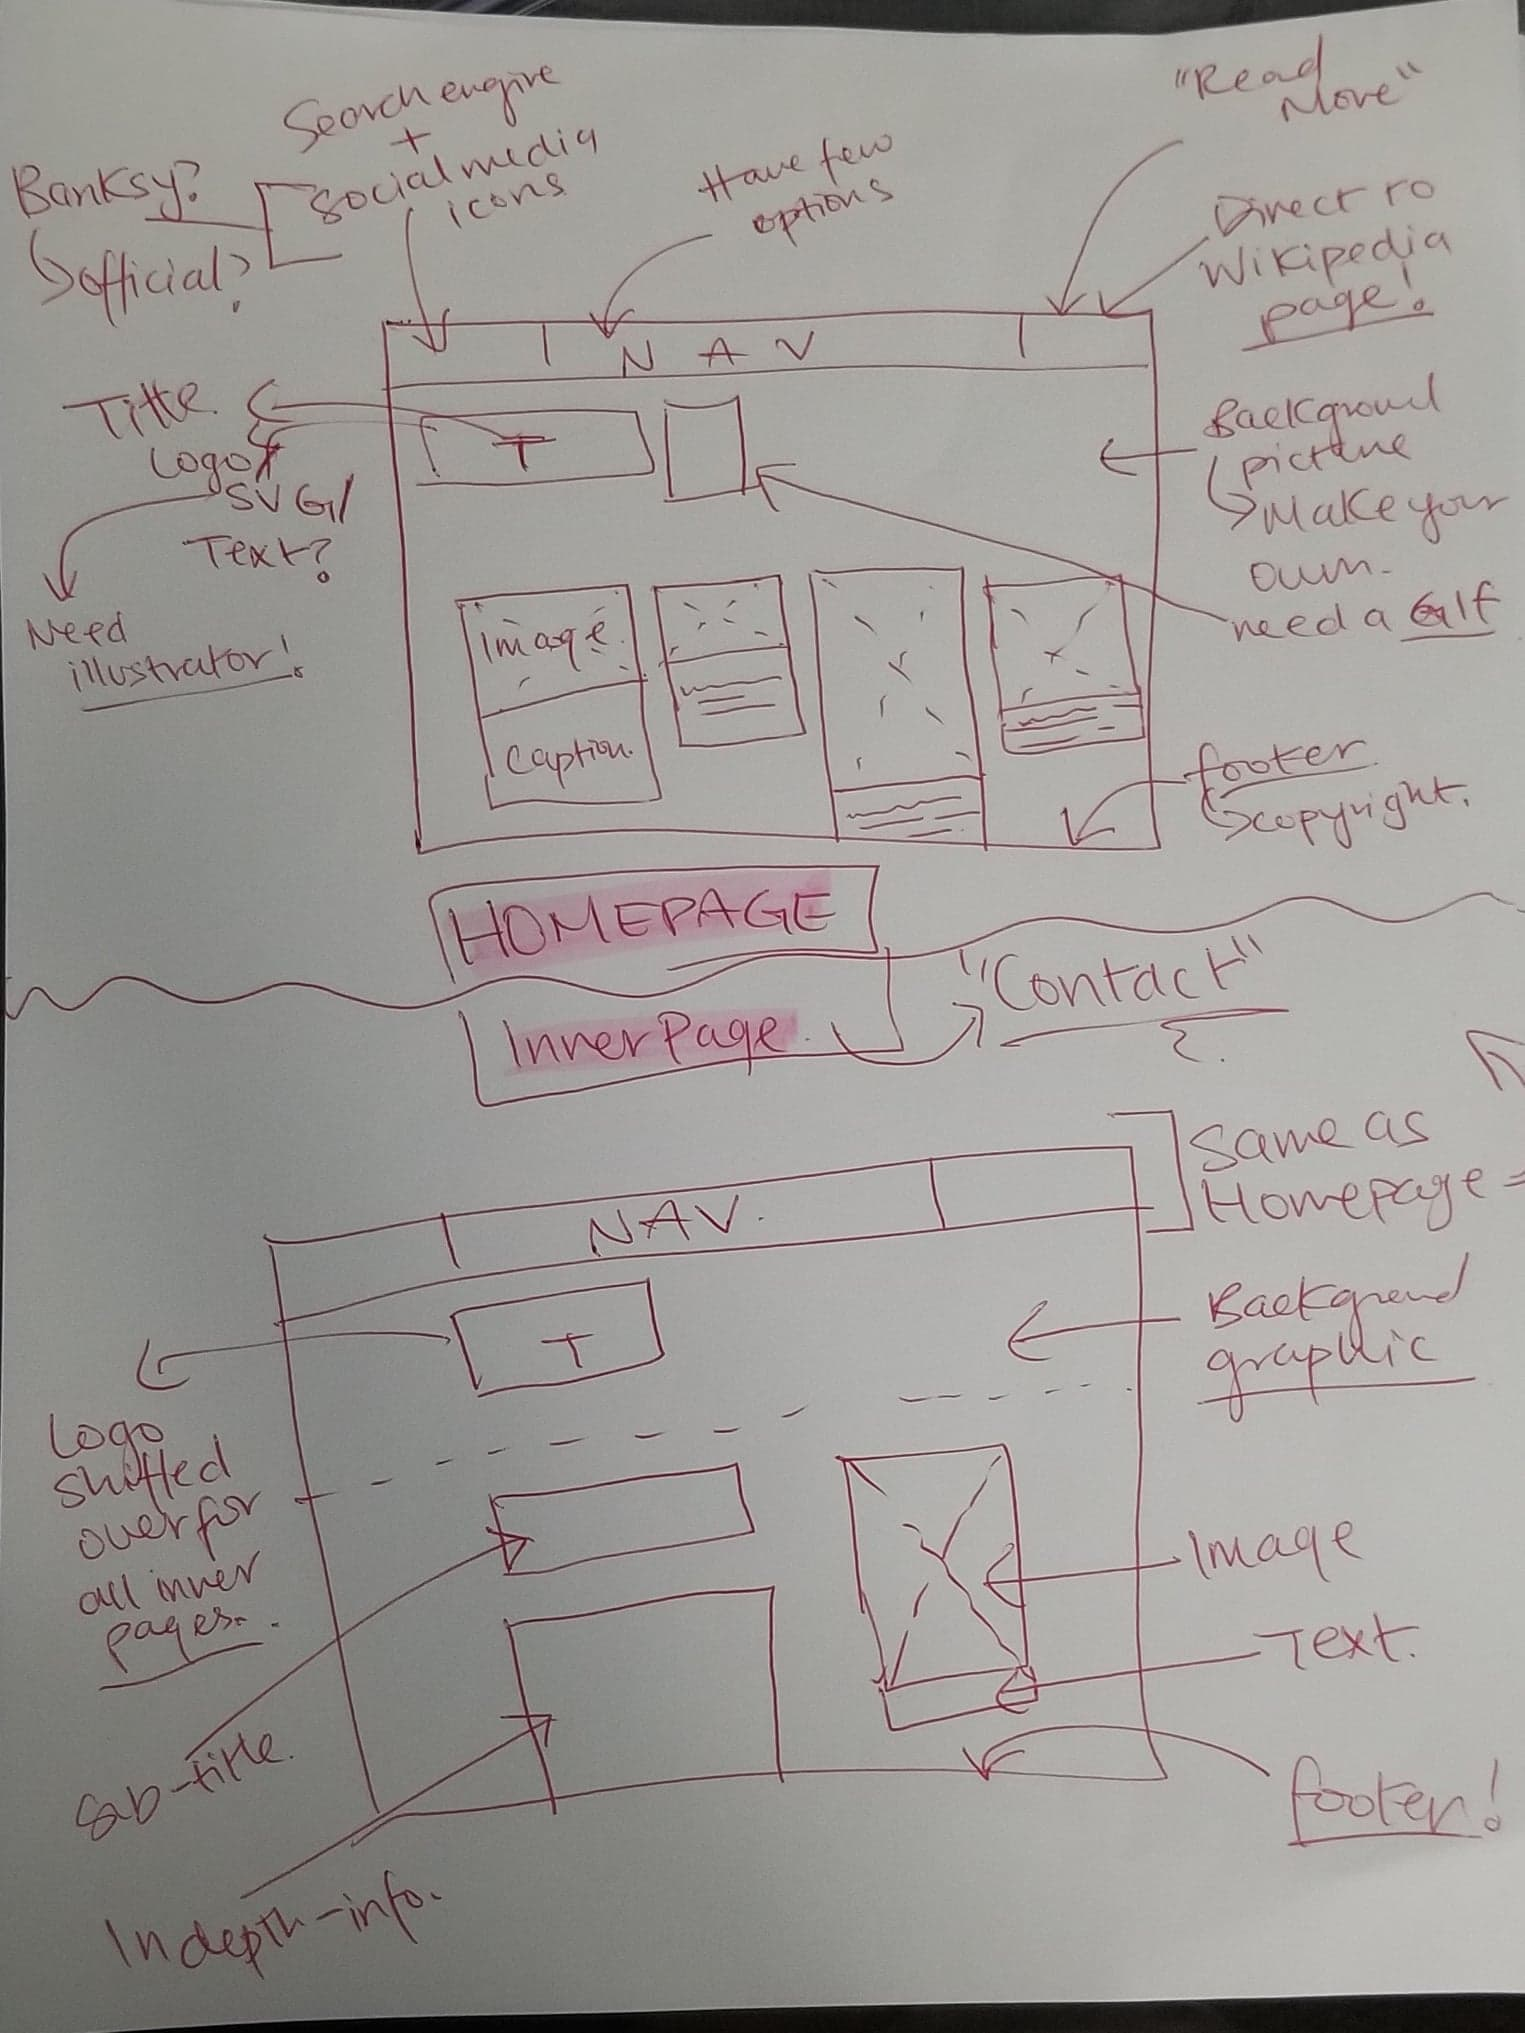 Search engine
+
social media
icons
Banksy?
official?
Have few
options
"Read
More"
Direct to
Wikipedia
page!
NAV
Title
Logo
SVG/
Text?
Need
illustrator!
T
Background
picture
Make your
own.
need a GIF
Image
Caption.
footer
copyright.
HOMEPAGE
Inner Page.
"Contact"
?
Same as
Homepage
NAV.
T
Background
graphic
Logo
shifted
over for
all inner
pages.
Image
Text.
Sub-title.
footer!
Indepth-info.